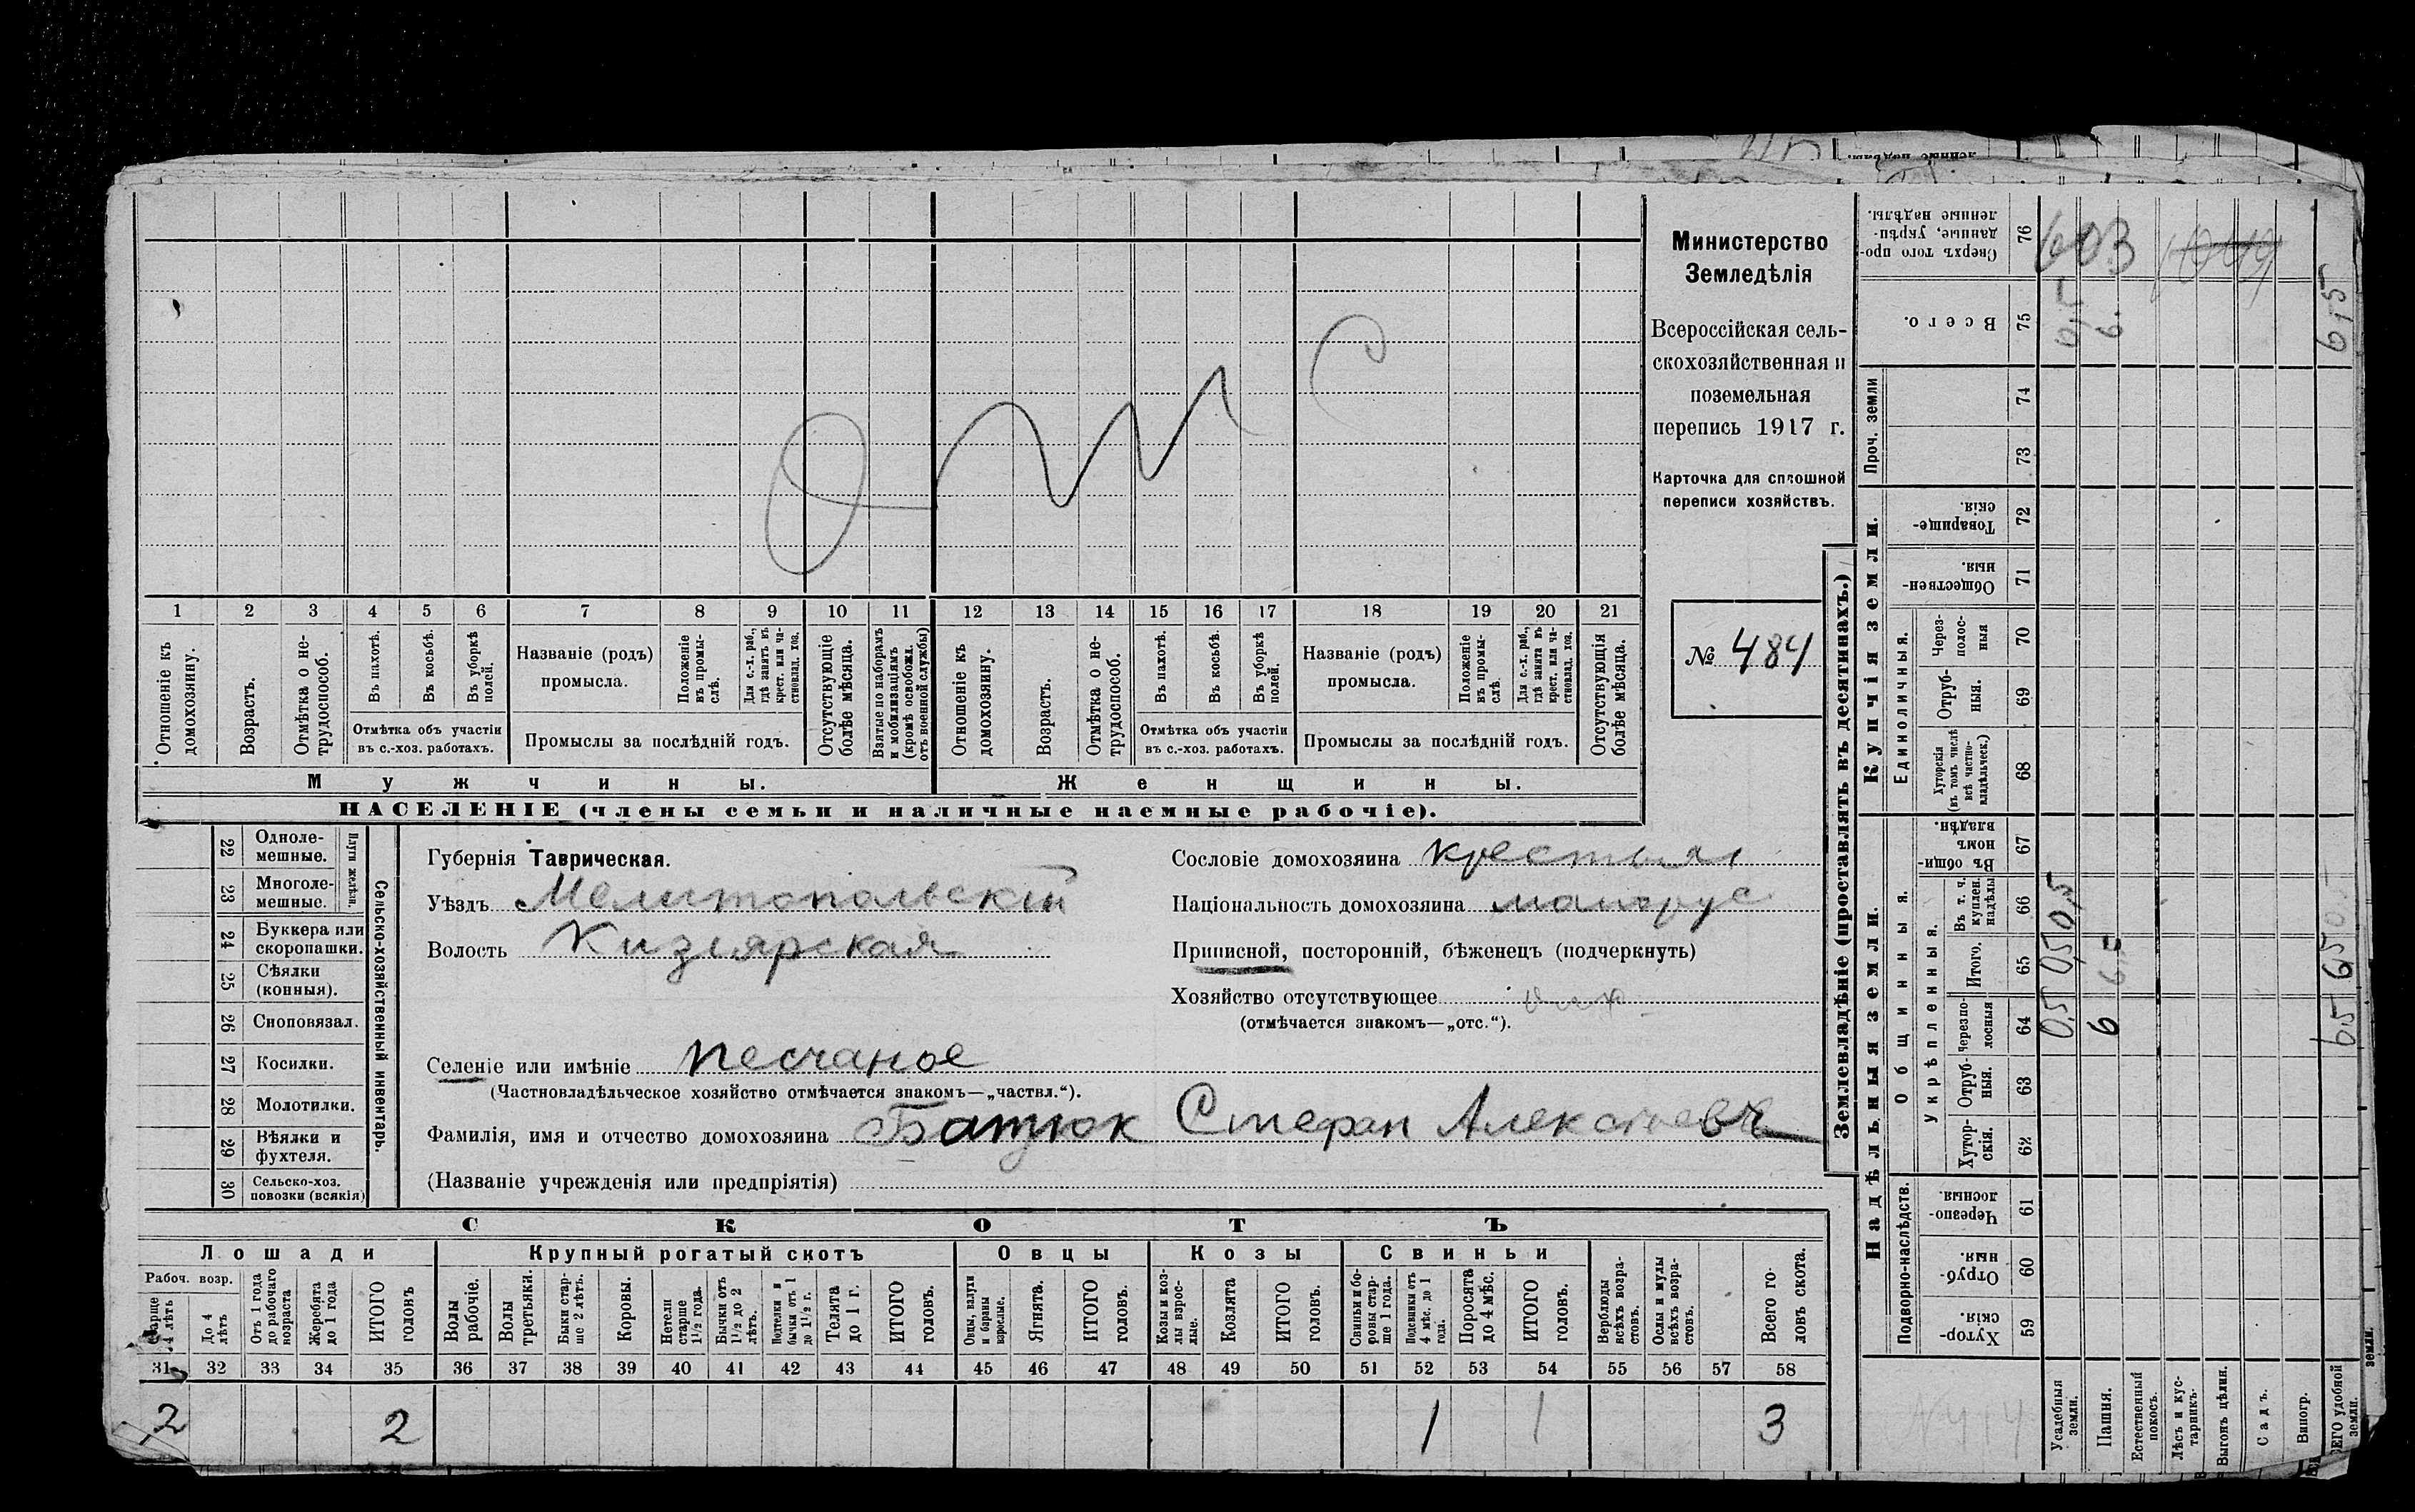 Министерство
Земледѣлія
Всероссійская сель-
скохозяйственная и
поземельная
перепись 1917 г.
Карточка для сплошной
переписи хозяйствъ.
№ 484
1 2 3 4 5 6 7 8 9 10 11 12 13 14 15 16 17 18 19 20 21
Отношеніе къ домохозяину.
Возрастъ.
Отмѣтка о не-трудоспособ.
Въ пахотѣ.
Въ косьбѣ.
Въ уборкѣ полей.
Отмѣтка объ участіи
въ с.-хоз. работахъ.
Названіе (родъ)
промысла.
Положеніе въ промы-слѣ.
Для с.-х. раб., гдѣ занятъ въ крест. или ча-стновлад. хоз.
Промыслы за послѣдній годъ.
Отсутствующіе болѣе мѣсяца.
Взятые по наборамъ и мобилизаціямъ (кромѣ освобожд. отъ военной службы)
Отношеніе къ домохозяину.
Возрастъ.
Отмѣтка о не-трудоспособ.
Въ пахотѣ.
Въ косьбѣ.
Въ уборкѣ полей.
Отмѣтка объ участіи
въ с.-хоз. работахъ.
Названіе (родъ)
промысла.
Положеніе въ промы-слѣ.
Для с.-х. раб., гдѣ занята въ крест. или ча-стновлад. хоз.
Промыслы за послѣдній годъ.
Отсутствующія болѣе мѣсяца.
Мужчины.
Женщины.
НАСЕЛЕНІЕ (члены семьи и наличные наемные рабочіе).
22 Одноле-мешные.
23 Многоле-мешные.
Плуги желѣзн.
24 Буккера или скоропашки.
25 Сѣялки (конныя).
26 Сноповязал.
27 Косилки.
28 Молотилки.
29 Вѣялки и фухтеля.
30 Сельско-хоз. повозки (всякія)
Сельско-хозяйственный инвентарь.
Губернія Таврическая.
Уѣздъ Мелитопольскій
Волость Кизіярская
Селеніе или имѣніе Песчаное
(Частновладѣльческое хозяйство отмѣчается знакомъ—„частвл.“).
Фамилія, имя и отчество домохозяина Батюк Стефан Алексѣевъ
(Названіе учрежденія или предпріятія)
Сословіе домохозяина крестьян
Національность домохозяина малорус
Приписной, посторонній, бѣженецъ (подчеркнуть)
Хозяйство отсутствующее
(отмѣчается знакомъ—„отс.“).
СКОТЪ
Лошади
Крупный рогатый скотъ
Овцы
Козы
Свиньи
Рабоч. возр.
Старше 4 лѣтъ
До 4 лѣтъ
Отъ 1 года до рабочаго возраста
Жеребята до 1 года
ИТОГО головъ
Волы рабочіе.
Волы третьяки.
Быки стар-ше 2 лѣтъ.
Коровы.
Нетели старше 1½ года.
Бычки отъ 1½ до 2 лѣтъ.
Подтелки и бычки отъ 1 до 1½ г.
Телята до 1 г.
ИТОГО головъ.
Овцы, валухи и бараны взрослые.
Ягнята.
ИТОГО головъ.
Козы и коз-лы взрос-лые.
Козлята
ИТОГО головъ.
Свиньи и бо-ровы стар-ше 1 года.
Подсвинки отъ 4 мѣс. до 1 года.
Поросята до 4 мѣс.
ИТОГО головъ.
Верблюды всѣхъ возра-стовъ.
Ослы и мулы всѣхъ возра-стовъ.
Всего го-ловъ скота.
31 32 33 34 35 36 37 38 39 40 41 42 43 44 45 46 47 48 49 50 51 52 53 54 55 56 57 58
2 2 1 1 3
Землевладѣніе (проставлять въ десятинахъ.)
Надѣльныя земли.
Купчія земли.
Проч. земли
Подворно-наслѣдств.
Общинныя.
Укрѣпленныя.
Единоличныя.
Сверхъ того про-данные, укрѣп-ленные надѣлы. 76 603
Всего. 75 0,5 6. 6,5
74
73
Товарище-скія. 72
Обществен-ныя. 71
Через-полос-ныя 70
Отруб-ныя. 69
Хуторскія (въ томъ числѣ всѣ частно-владѣльческ.) 68
Въ общин-номъ владѣн. 67
Въ т. ч. куплен. надѣлы 66 0,5
Итого. 65 0,5 6 6,5
Черезпо-лосныя 64 0,5 6 6,5
Отруб-ныя. 63
Хутор-скія. 62
Черезпо-лосныя. 61
Отруб-ныя. 60
Хутор-скія. 59
Усадебныя земли.
Пашня.
Естественный покосъ.
Лѣсъ и кус-тарникъ.
Выгонъ цѣлин.
Садъ.
Виногр.
ВСЕГО удобной земли.